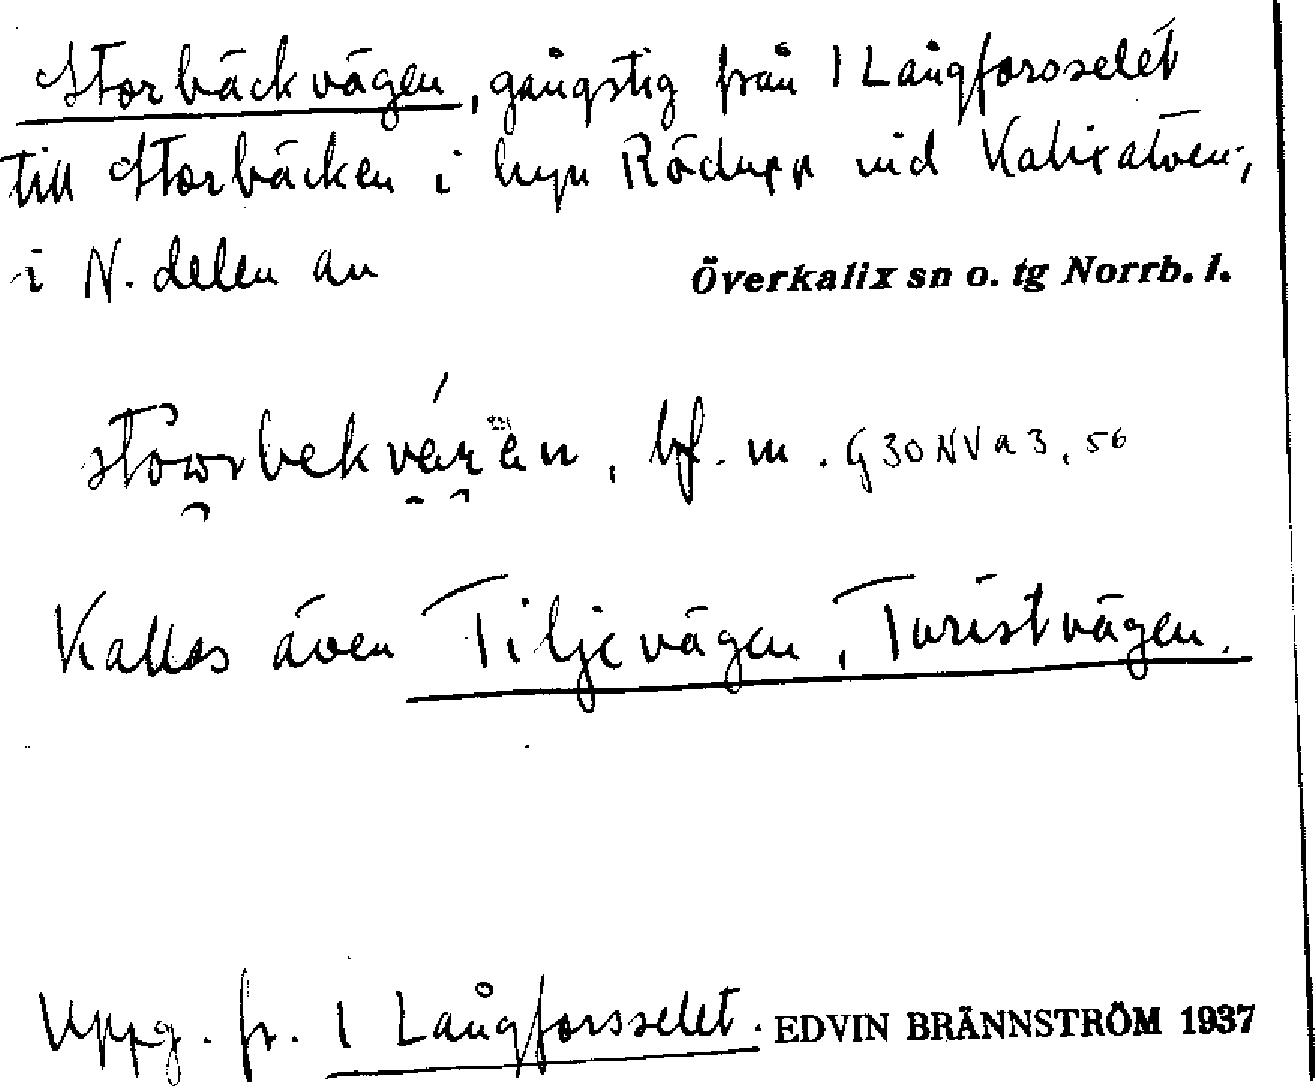 Storbäckvägen, gångstig från 1 Långforsselet
till Storbäcken i byn Rödupp vid Kalixälven,
i N. delen av Överkalix sn o. tg Norrb. l.
bf. m. G30NVa3,56
Kallas även Tiljevägen, Turistvägen.
Uppg. fr. 1 Långforsselet. EDVIN BRÄNNSTRÖM 1937